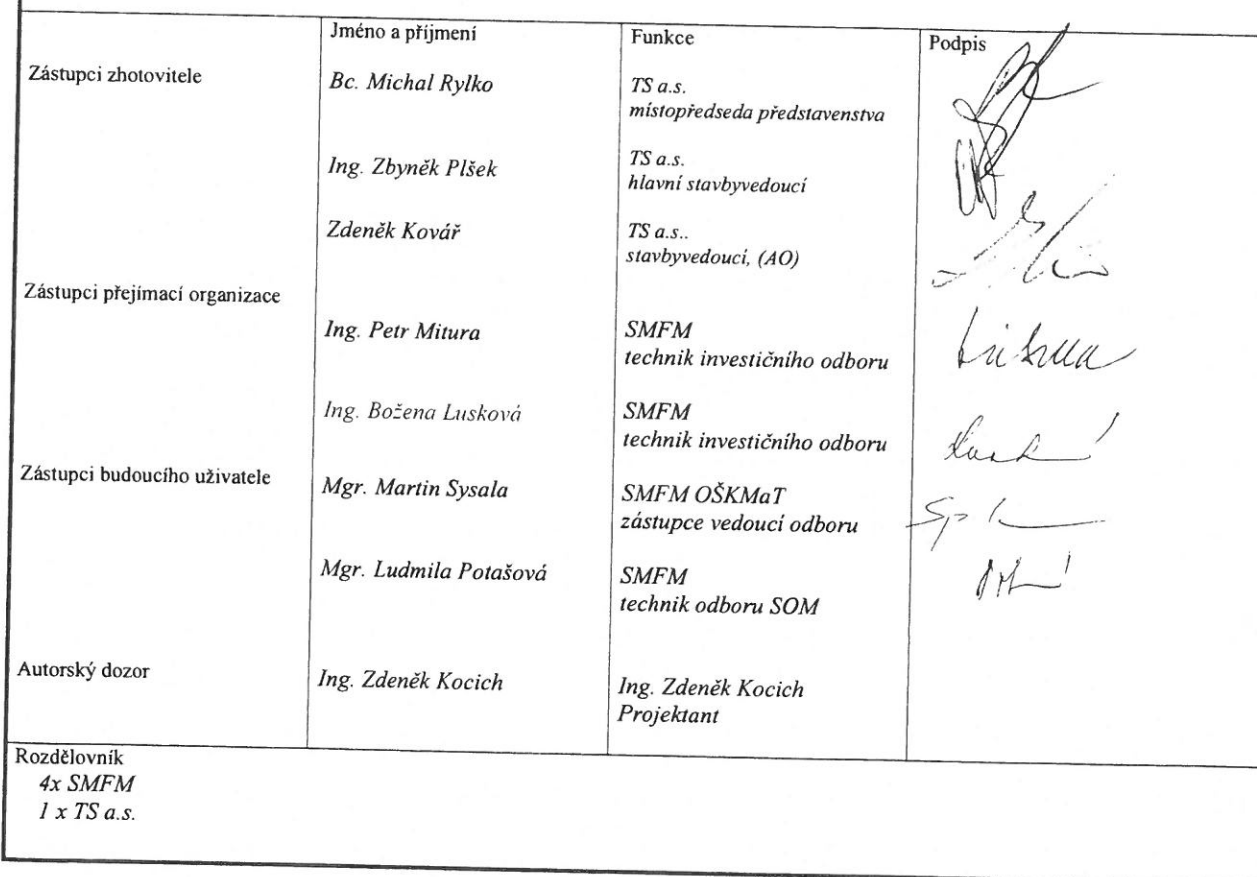 Jméno a příjmení
Funkce
Podpis
Zástupci zhotovitele
Bc. Michal Rylko
TS a.s.
místopředseda představenstva
Ing. Zbyněk Plšek
TS a.s.
hlavní stavbyvedoucí
Zdeněk Kovář
TS a.s..
stavbyvedoucí, (AO)
Zástupci přejímací organizace
Ing. Petr Mitura
SMFM
technik investičního odboru
Ing. Božena Lusková
SMFM
technik investičního odboru
Zástupci budoucího uživatele
Mgr. Martin Sysala
SMFM OŠKMaT
zástupce vedoucí odboru
Mgr. Ludmila Potašová
SMFM
technik odboru SOM
Autorský dozor
Ing. Zdeněk Kocich
Ing. Zdeněk Kocich
Projektant
Rozdělovník
4x SMFM
1 x TS a.s.